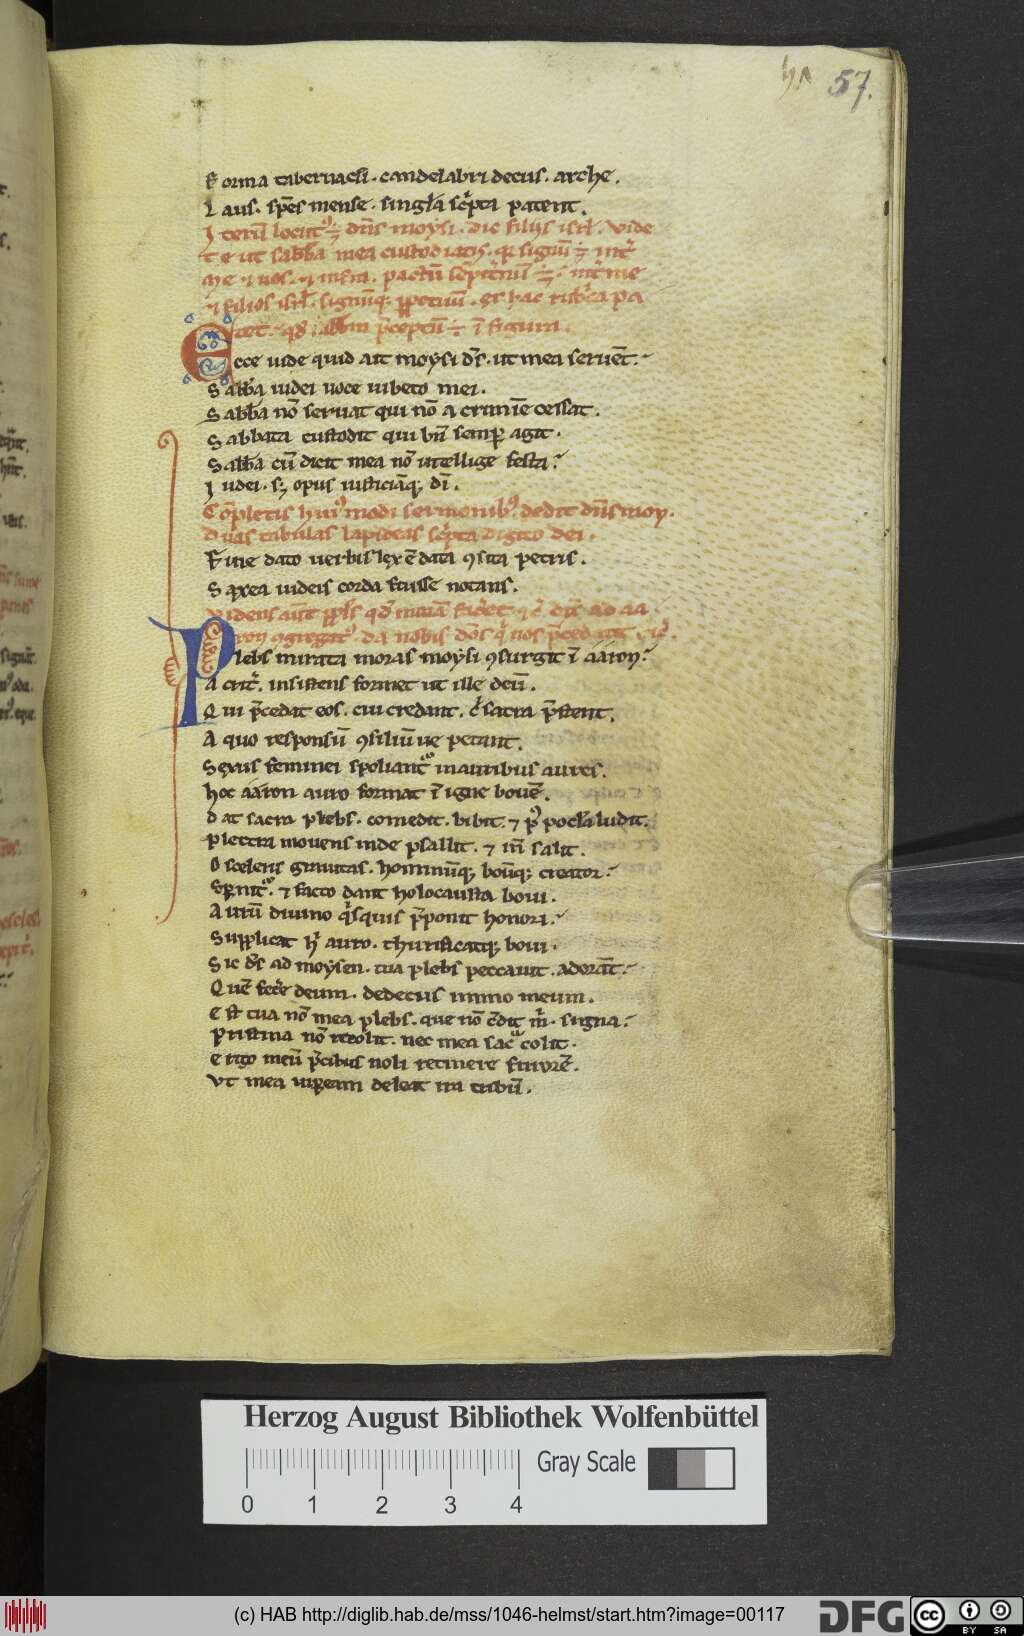 57.
Forma tabernacli. candelabri decus. arche.
Laus. spēs mense. singl̄a scͥpta patent.
Iterū locutꝰ ÷ dn̄s moẏsi. dic filiis isrl̄. Vide
te ut sabb̄a mea custodiatis. qr signū ÷ int̄
me ⁊ uos. pactū sēpit̄nū ÷ int̄ me
⁊ filios isrl̄. signūq; ꝑpetuū. ex hac rubͥca pa
tet. qd̄ sabb̄m p̄ceptū ÷ ī figura.
Ecce uide quid ait moẏsi ds̄. ut mea seruēt.
Sabb̄a iudei uoce iubeto mei.
Sabb̄a nō seruat qui nō a crimīe cessat.
Sabbata custodit qui bn̄ semꝑ agit.
Sabb̄a cū dicit mea nō intellige festa.
Iudei. sꝫ opus iusticiāq; dī.
Cōpletis huiꝰmodi sermonibꝰ. dedit dn̄s moẏ.
Duas tabulas lapideas scͥpta digito dei.
Fine dato uerbis lex ē data ꝯsita petris.
Saxea iudeis corda fuisse notans.
Videns aūt ppl̄s qd̄ morā fac̄et
aron ꝯgregatꝰ da nobis dōs qͥ nos p̄cedant
Plebs mirata moras moẏsi ꝯsurgit ī ááron.
Acrit̄. insistens formet ut ille deū.
Qui p̄cedat eos. cui credant. cͥ sacra p̄stent.
A quo responsū ꝯsiliūue petant.
Sexus feminei spoliant᷑ inauribus aures.
Hoc ááron auro format ī igne bouē.
Dat sacra plebs. comedit. bibit. ⁊ pꝰ pocl̄a ludit.
Plectra mouens inde psallit. ⁊ in̄ salit.
O sceleris grauitas. hominūq; boūq; creator.
Spernit᷑. ⁊ facto dant holocausta boui.
Aurū diuino qͥsquis p̄ponit honori.
Supplicat hͥ auro. thurificatq; boui.
Sic ds̄ ad moẏsen. tua plebs peccauit. adorāt.
Quē fecͤre deum. dedecus immo meum.
Est tua nō mea plebs. que nō cͤdit m̄. signa.
Pristina nō recolit. nec mea sacͣ colit.
Ergo meū p̄cibus noli retinere furorē.
Vt mea uiꝑeam deleat ira tribū.
Herzog August Bibliothek Wolfenbüttel
Gray Scale
0 1 2 3 4
(c) HAB http://diglib.hab.de/mss/1046-helmst/start.htm?image=00117
DFG
cc BY SA